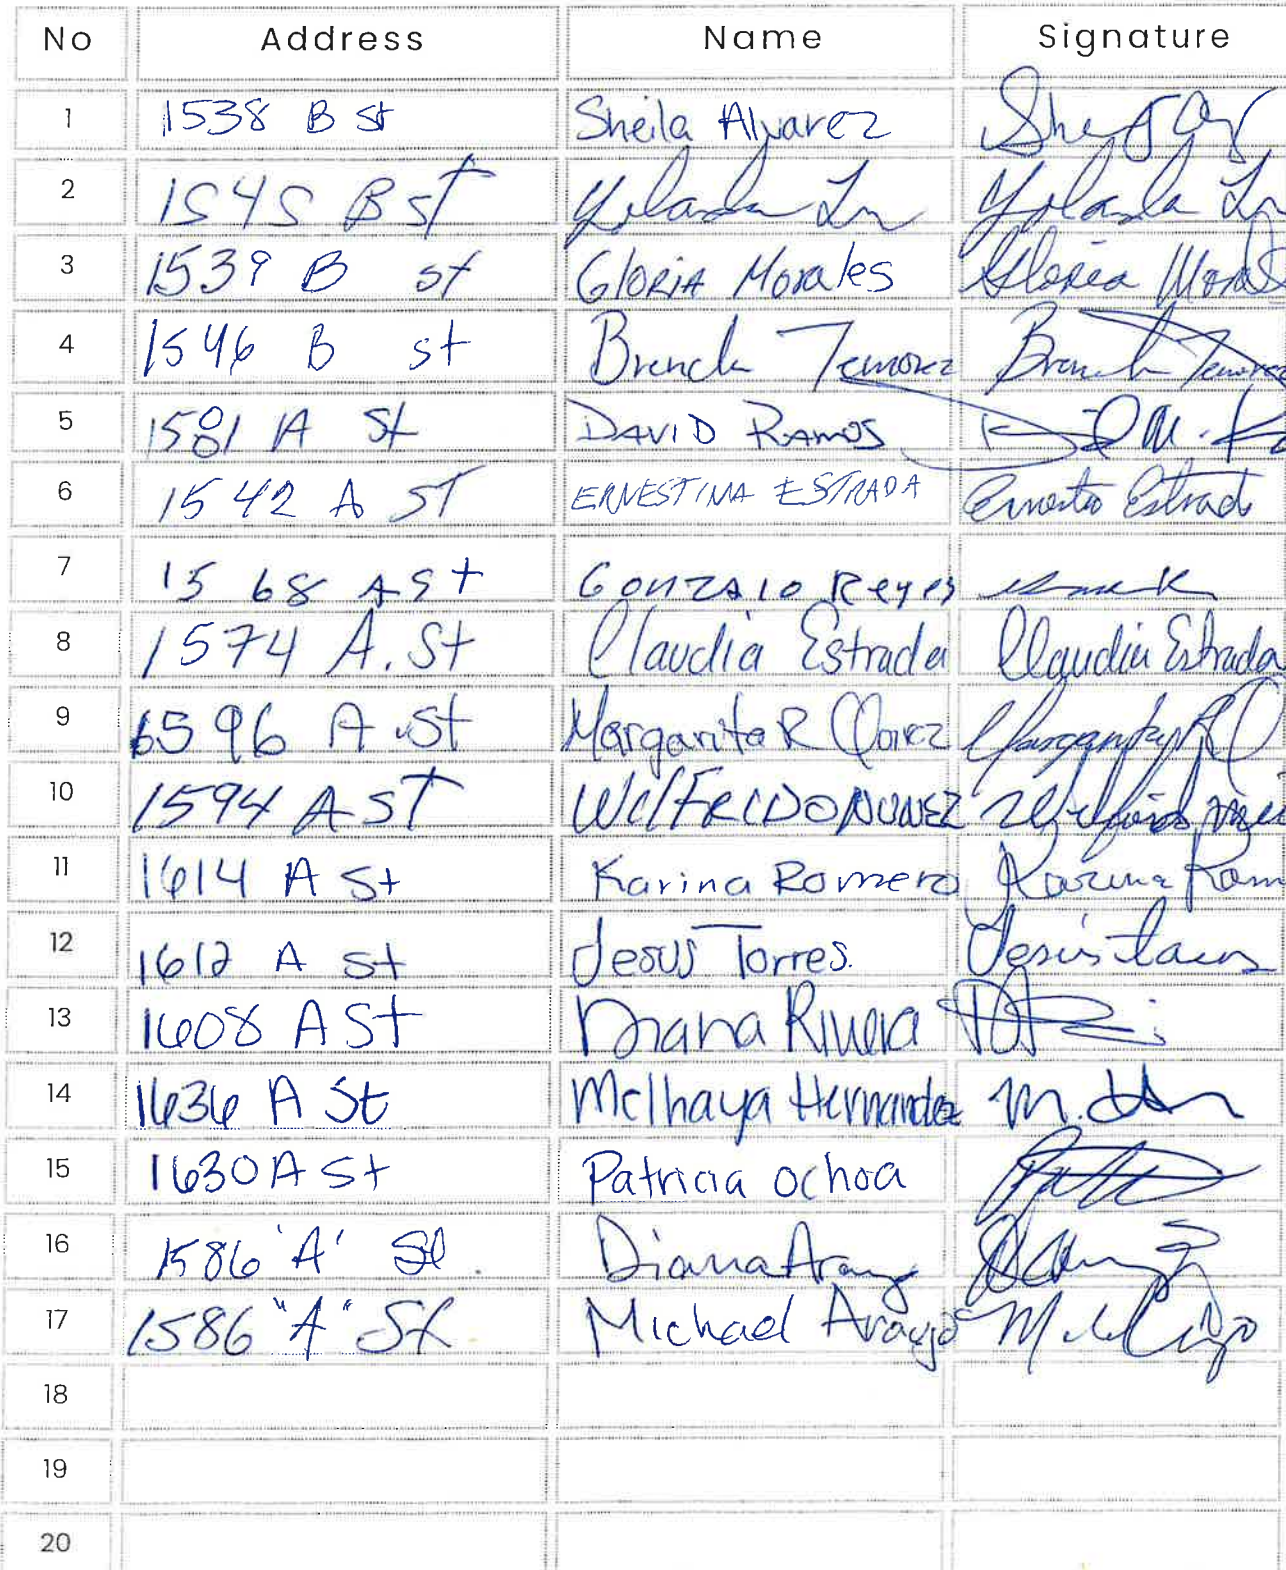 No Address Name Signature
1 1538 B St Sheila Alvarez
2 1545 B st Yolanda Yolanda
3 1539 B st Gloria Morales Gloria
4 1546 B st Brenda
5 A St David Ramos
6 1542 A ST ERNESTINA ESTRADA Estrada
7 15 68 A St Gonzalo Reyes
8 1574 A. St Claudia Estrada Claudia Estrada
9 A St Margarita R
10 1594 A ST WilFRIDO NUNEZ
11 1614 A St Karina Romero Karina
12 1612 A St Jesus Torres. Jesus
13 1608 A St Diana Rivera
14 1636 A St Melhaya Hernandez M.
15 1630 A St Patricia Ochoa
16 1586 'A' St. Diana
17 1586 "A" St Michael Araujo
18
19
20